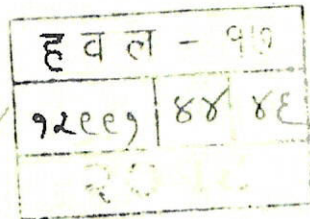 हवल - १७
१२९९१ ४४ ४६